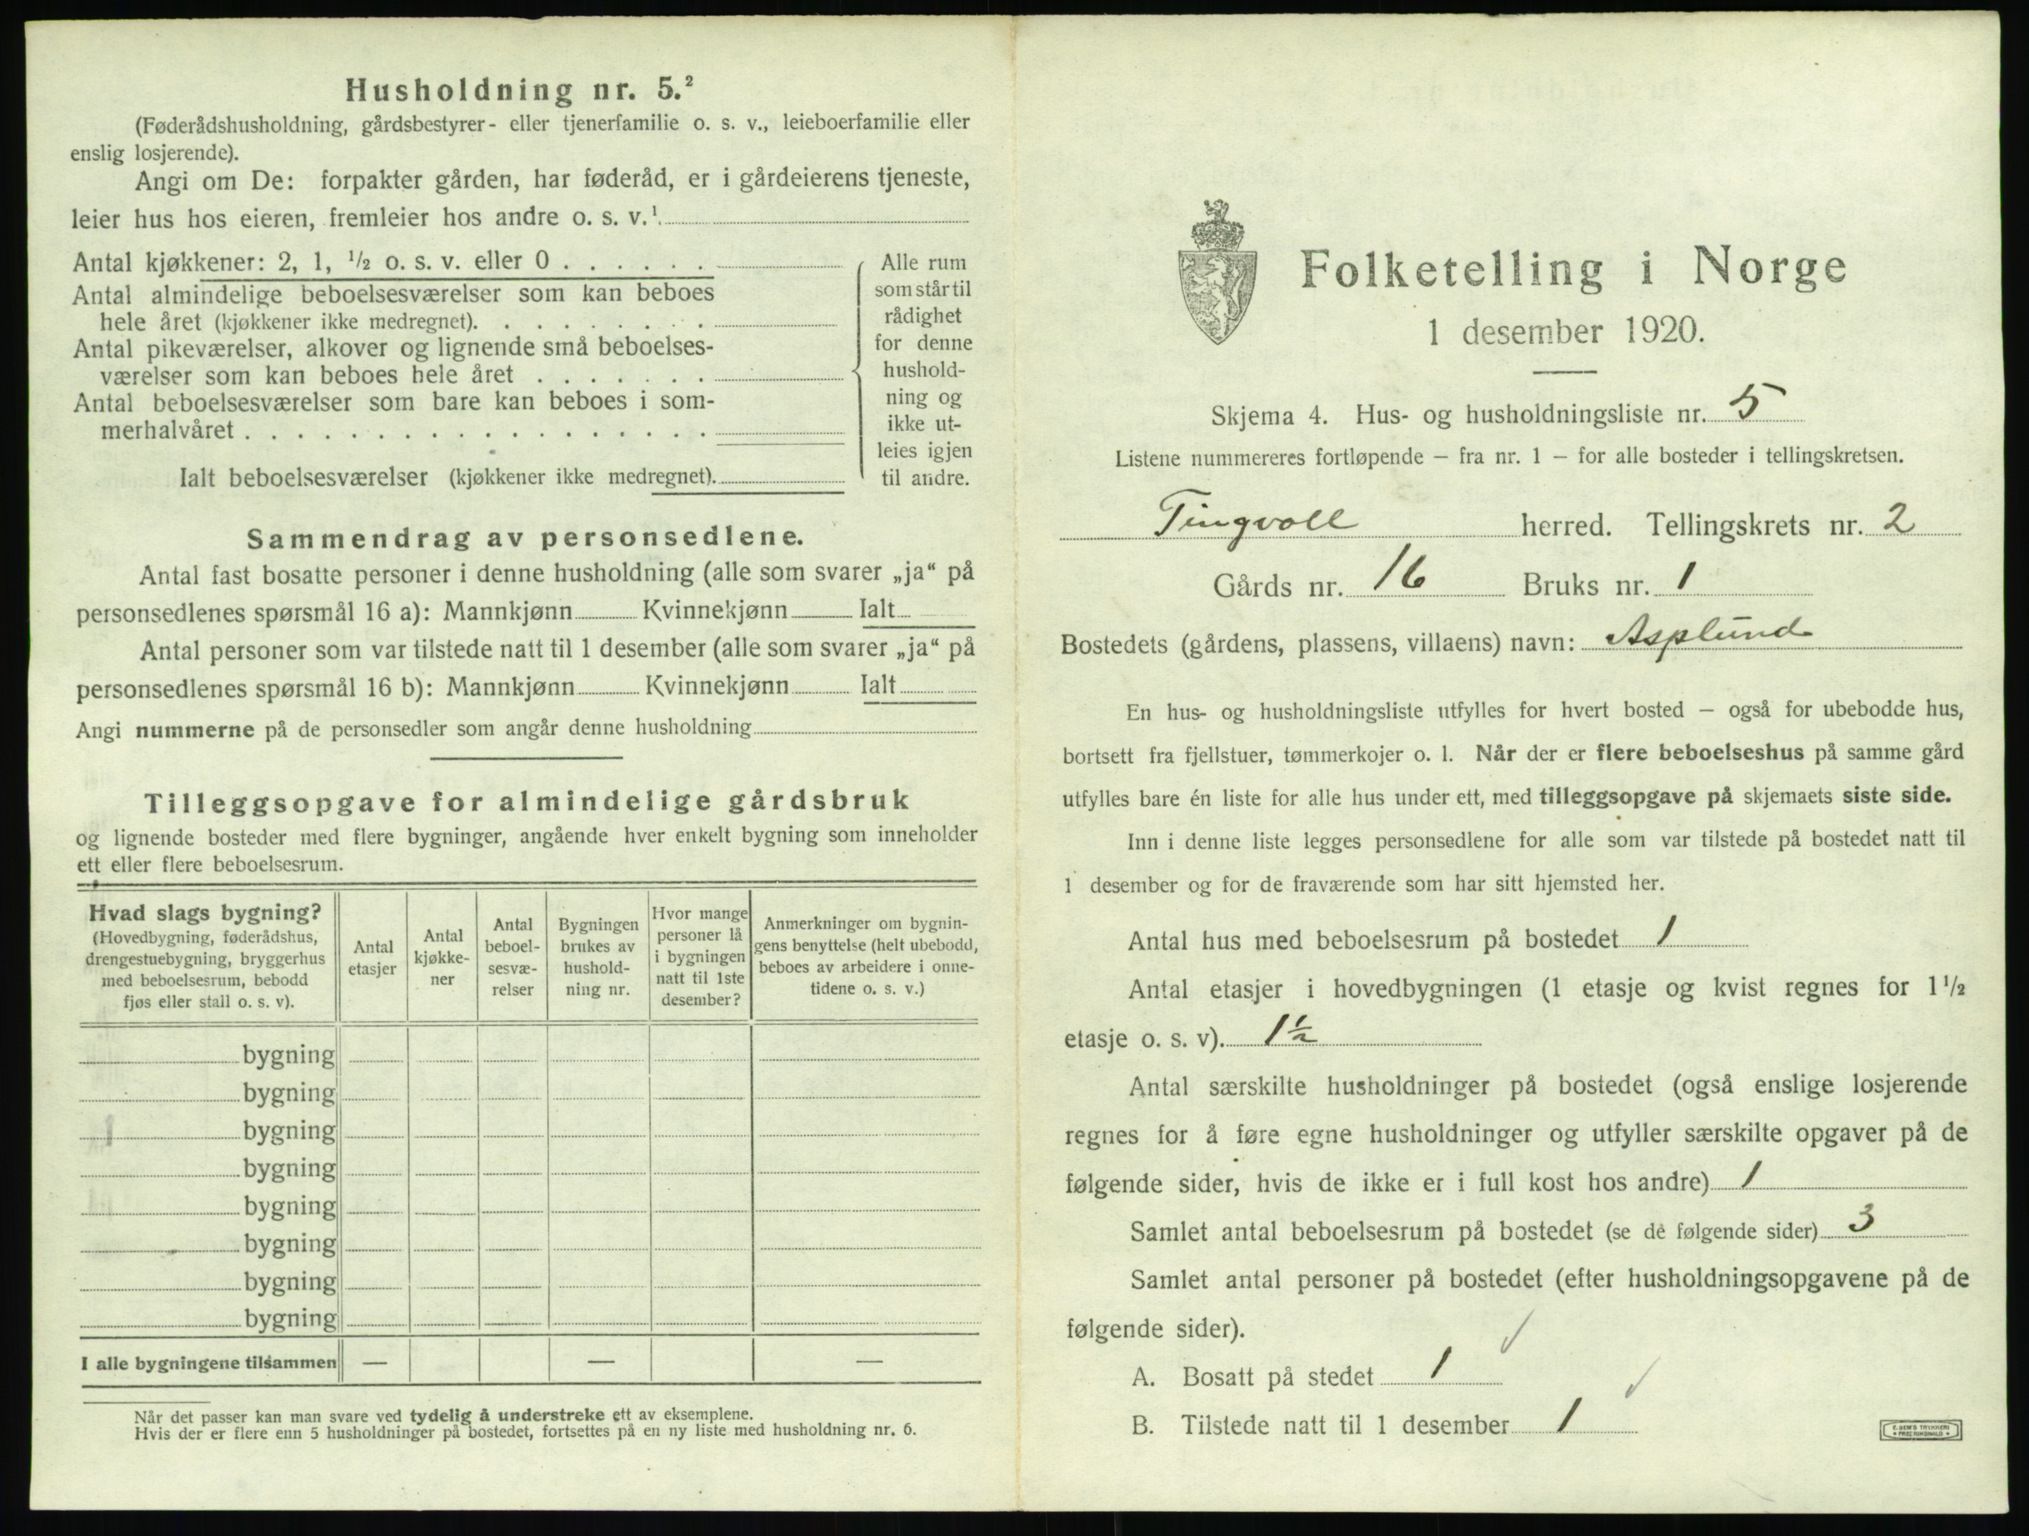 Husholdning nr. 5.²
(Føderådshusholdning, gårdsbestyrer- eller tjenerfamilie o. s. v., leieboerfamilie eller
enslig losjerende).
Angi om De: forpakter gården, har føderåd, er i gårdeierens tjeneste,
leier hus hos eieren, fremleier hos andre o. s. v.¹
Antal kjøkkener: 2, 1, ½ o. s. v. eller 0 . . . . . .
Antal almindelige beboelsesværelser som kan beboes
hele året (kjøkkener ikke medregnet). . . . . . . . .
Antal pikeværelser, alkover og lignende små beboelses-
værelser som kan beboes hele året . . . . . . .
Antal beboelsesværelser som bare kan beboes i som-
merhalvåret . . . . . . . . . . . . . . . . . .
Ialt beboelsesværelser (kjøkkener ikke medregnet).
Alle rum
som står til
rådighet
for denne
hushold-
ning og
ikke ut-
leies igjen
til andre.
Sammendrag av personsedlene.
Antal fast bosatte personer i denne husholdning (alle som svarer „ja“ på
personsedlenes spørsmål 16 a): Mannkjønn Kvinnekjønn Ialt
Antal personer som var tilstede natt til 1 desember (alle som svarer „ja“ på
personsedlenes spørsmål 16 b): Mannkjønn Kvinnekjønn Ialt
Angi nummerne på de personsedler som angår denne husholdning
Tilleggsopgave for almindelige gårdsbruk
og lignende bosteder med flere bygninger, angående hver enkelt bygning som inneholder
ett eller flere beboelsesrum.
Hvad slags bygning?
(Hovedbygning, føderådshus,
drengestuebygning, bryggerhus
med beboelsesrum, bebodd
fjøs eller stall o. s. v).
Antal
etasjer
Antal
kjøkke-
ner
Antal
beboel-
sesvæ-
relser
Bygningen
brukes av
hushold-
ning nr.
Hvor mange
personer lå
i bygningen
natt til 1ste
desember?
Anmerkninger om bygnin-
gens benyttelse (helt ubebodd,
beboes av arbeidere i onne-
tidene o. s. v.)
bygning
bygning
bygning
bygning
bygning
bygning
bygning
bygning
I alle bygningene tilsammen — — —
Når det passer kan man svare ved tydelig å understreke ett av eksemplene.
Hvis der er flere enn 5 husholdninger på bostedet, fortsettes på en ny liste med husholdning nr. 6.
Folketelling i Norge
1 desember 1920.
Skjema 4. Hus- og husholdningsliste nr. 5
Listene nummereres fortløpende – fra nr. 1 – for alle bosteder i tellingskretsen.
Tingvoll herred. Tellingskrets nr. 2
Gårds nr. 16 Bruks nr. 1
Bostedets (gårdens, plassens, villaens) navn: Asplund
En hus- og husholdningsliste utfylles for hvert bosted – også for ubebodde hus,
bortsett fra fjellstuer, tømmerkojer o. l. Når der er flere beboelseshus på samme gård
utfylles bare én liste for alle hus under ett, med tilleggsopgave på skjemaets siste side.
Inn i denne liste legges personsedlene for alle som var tilstede på bostedet natt til
1 desember og for de fraværende som har sitt hjemsted her.
Antal hus med beboelsesrum på bostedet 1
Antal etasjer i hovedbygningen (1 etasje og kvist regnes for 1½
etasje o. s. v). 1½
Antal særskilte husholdninger på bostedet (også enslige losjerende
regnes for å føre egne husholdninger og utfyller særskilte opgaver på de
følgende sider, hvis de ikke er i full kost hos andre) 1
Samlet antal beboelsesrum på bostedet (se de følgende sider) 3
Samlet antal personer på bostedet (efter husholdningsopgavene på de
følgende sider).
A. Bosatt på stedet 1 ✓
B. Tilstede natt til 1 desember 1 ✓